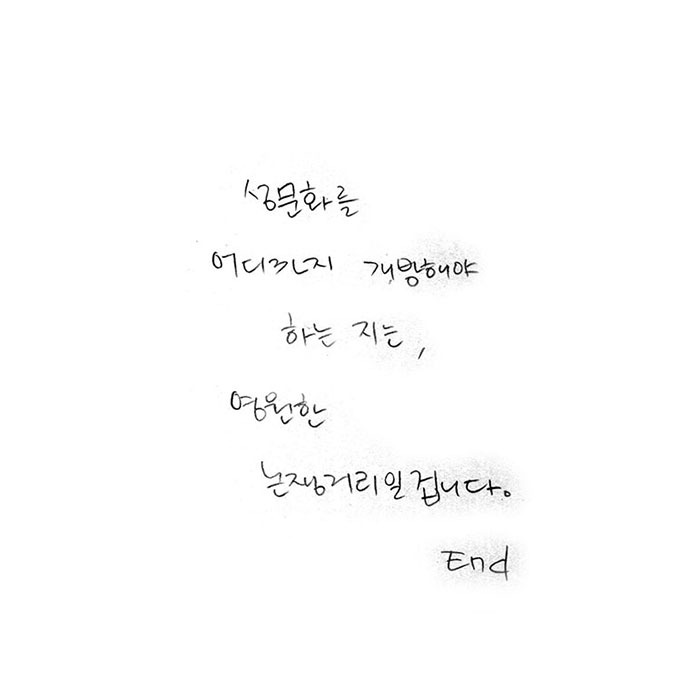 성문화를
어디까지 개방해야
하는 지는,
영원한
논쟁거리일 겁니다.
End